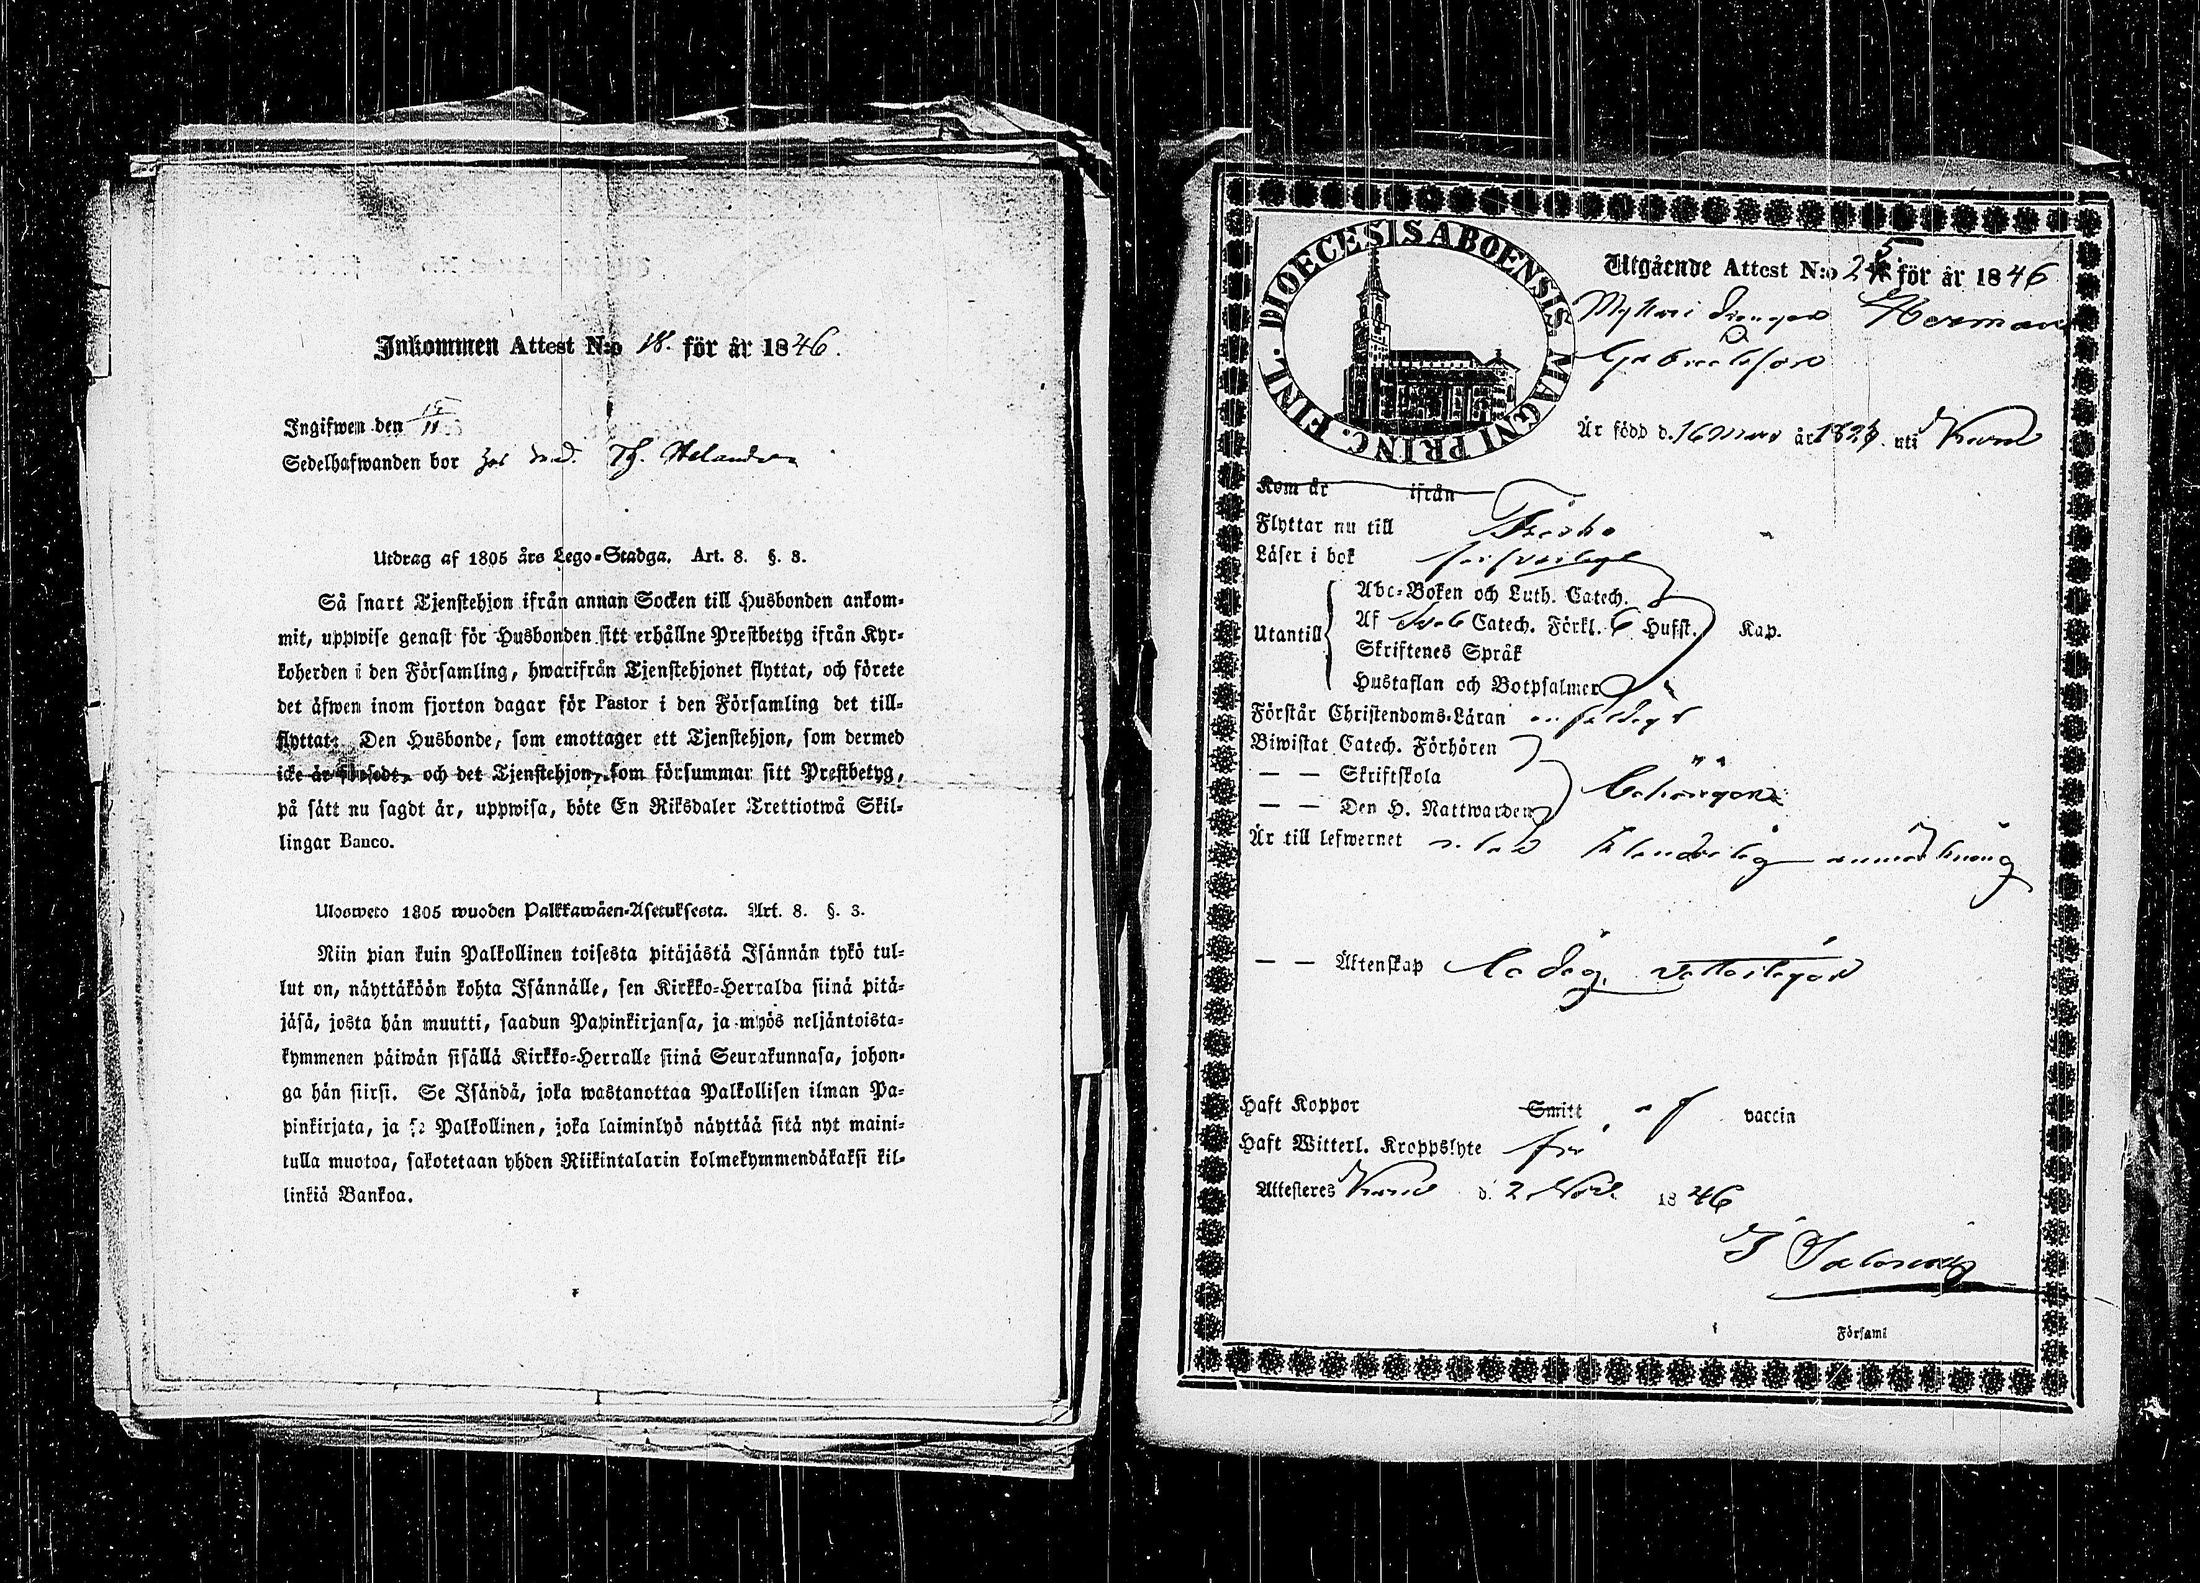 Inkommen Attest N:o 18. för år 1846.
Ingifwen den 15/11
Sedelhafwanden bor hos Th. Helander
Utdrag af 1805 års Lego-Stadga. Art. 8. §. 3.
Så snart Tjenstehjon ifrån annan Socken till Husbonden ankom-
mit, uppwise genast för Husbonden sitt erhållne Prestbetyg ifrån Kyr-
koherden i den Församling, hwarifrån Tjenstehjonet flyttat, och förete
det äfwen inom fjorton dagar för Pastor i den Församling det till-
flyttat. Den Husbonde, som emottager ett Tjenstehjon, som dermed
icke är försedt, och det Tjenstehjon, som försummar sitt Prestbetyg,
på sätt nu sagdt är, uppwisa, böte En Riksdaler Trettiotwå Skil-
lingar Banco.
Ulosweto 1805 wuoden Palkkawäen-Asetuksesta. Art. 8. §. 3.
Niin pian kuin Palkollinen toisesta pitäjästä Isännän tykö tul-
lut on, näyttäköön kohta Isännälle, sen Kirkko-Herralda siinä pitä-
jäsä, josta hän muutti, saadun Papinkirjansa, ja myös neljäntoista-
kymmenen päiwän sisällä Kirkko-Herralle siinä Seurakunnasa, johon-
ga hän siirsi. Se Isändä, joka wastanottaa Palkollisen ilman Pa-
pinkirjata, ja se Palkollinen, joka laiminlyö näyttää sitä nyt maini-
tulla muotoa, sakotetaan yhden Riikintalarin kolmekymmendäkaksi kil-
linkiä Bankoa.
DIOECESIS ABOENSIS MAGNI PRINC. FINL.
Utgående Attest N:o 25 för år 1846
Drengen Herman
Gabrielsson
Är född d. 16 Mars år 182 uti
Kom år ifrån
Flyttar nu till
Läser i bok försvarligt
Utantill
Abc-Boken och Luth. Catech.
Af Sveb Catech. Förkl. 6 Hufst. Kap.
Skriftenes Språk
Hustaflan och Botpsalmer
Förstår Christendoms-Läran enfaldigt
Biwistat Catech. Förhören
— — Skriftskola
— — Den H. Nattwarden
behörigen
Är till lefwernet utan klanderlig anmärkning
— — Äktenskap ledig, veterligen
Haft Koppor Smitt af vaccin
Haft Witterl. Kroppslyte fri
Attesteres d. 2 Nov. 1846
Församl